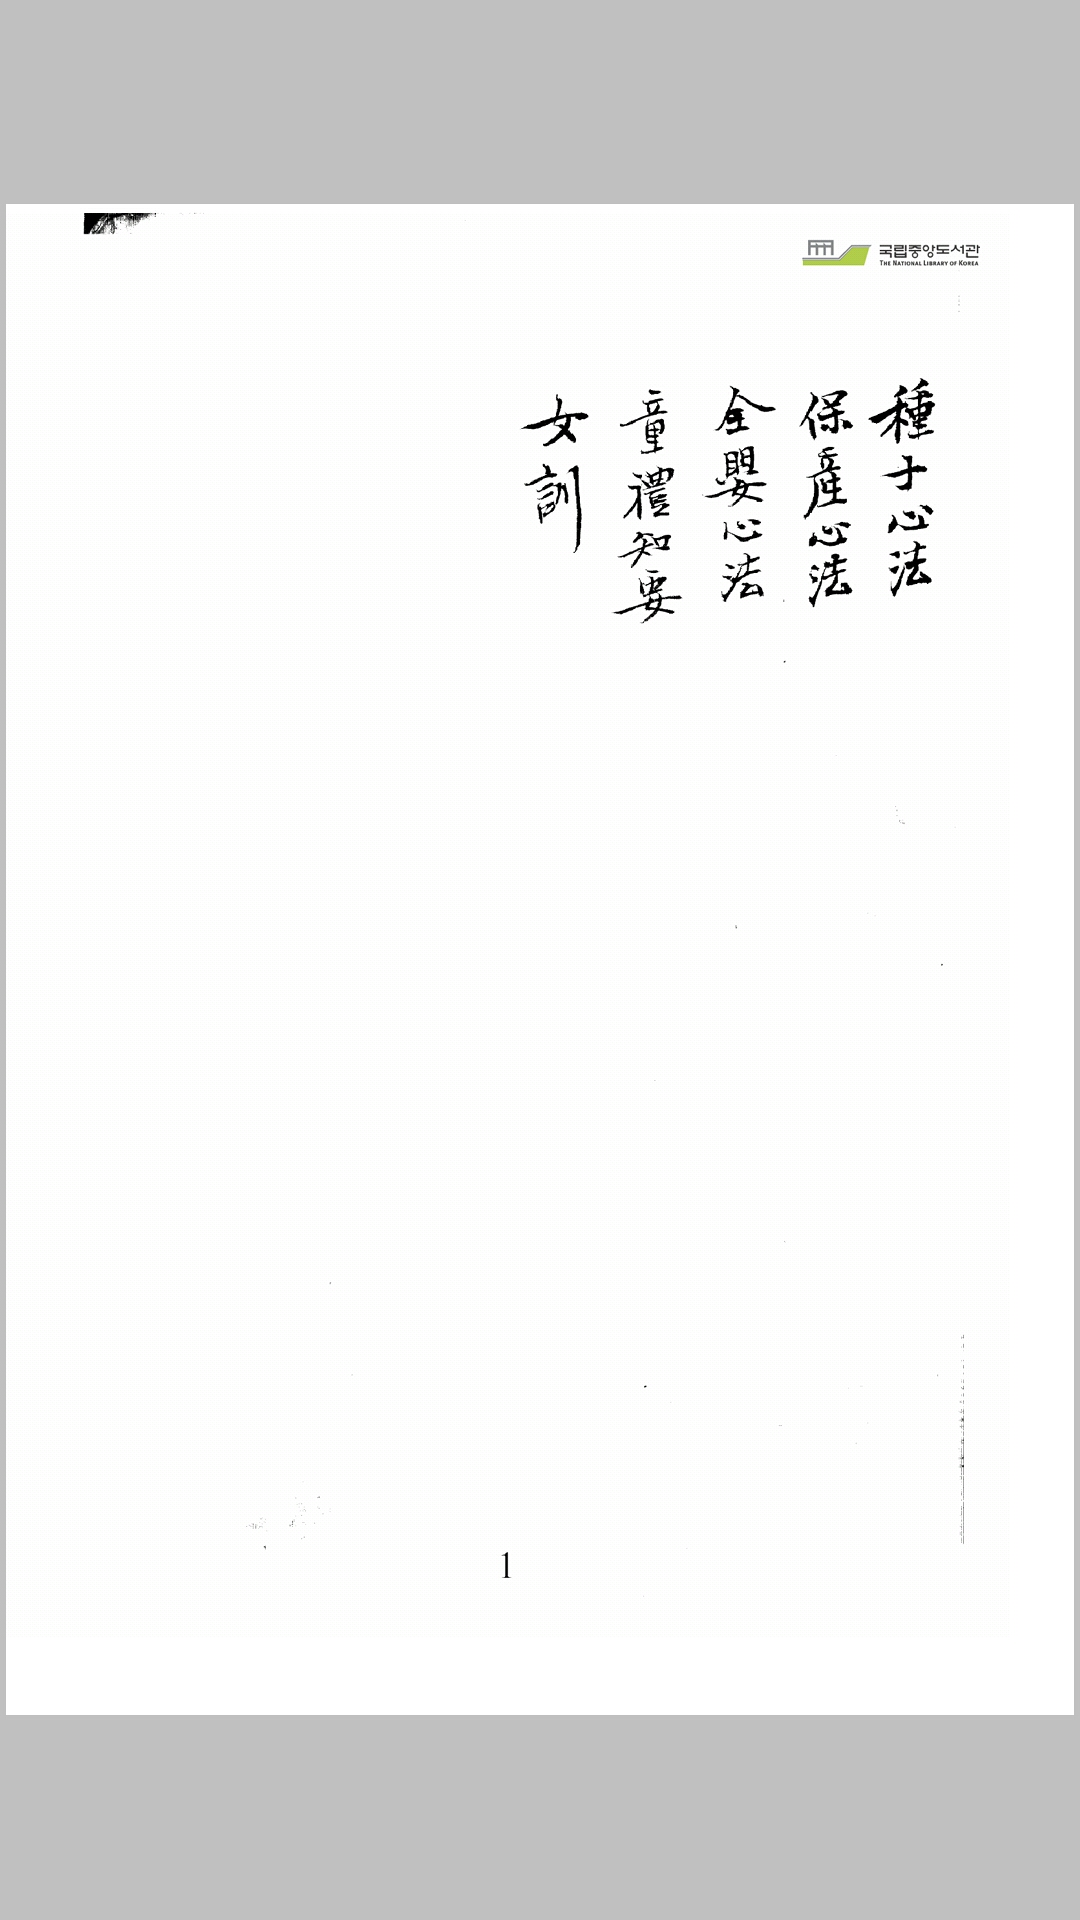 국립중앙도서관
THE NATIONAL LIBRARY OF KOREA
種子心法
保産心法
全嬰心法
童禮知要
女訓
1